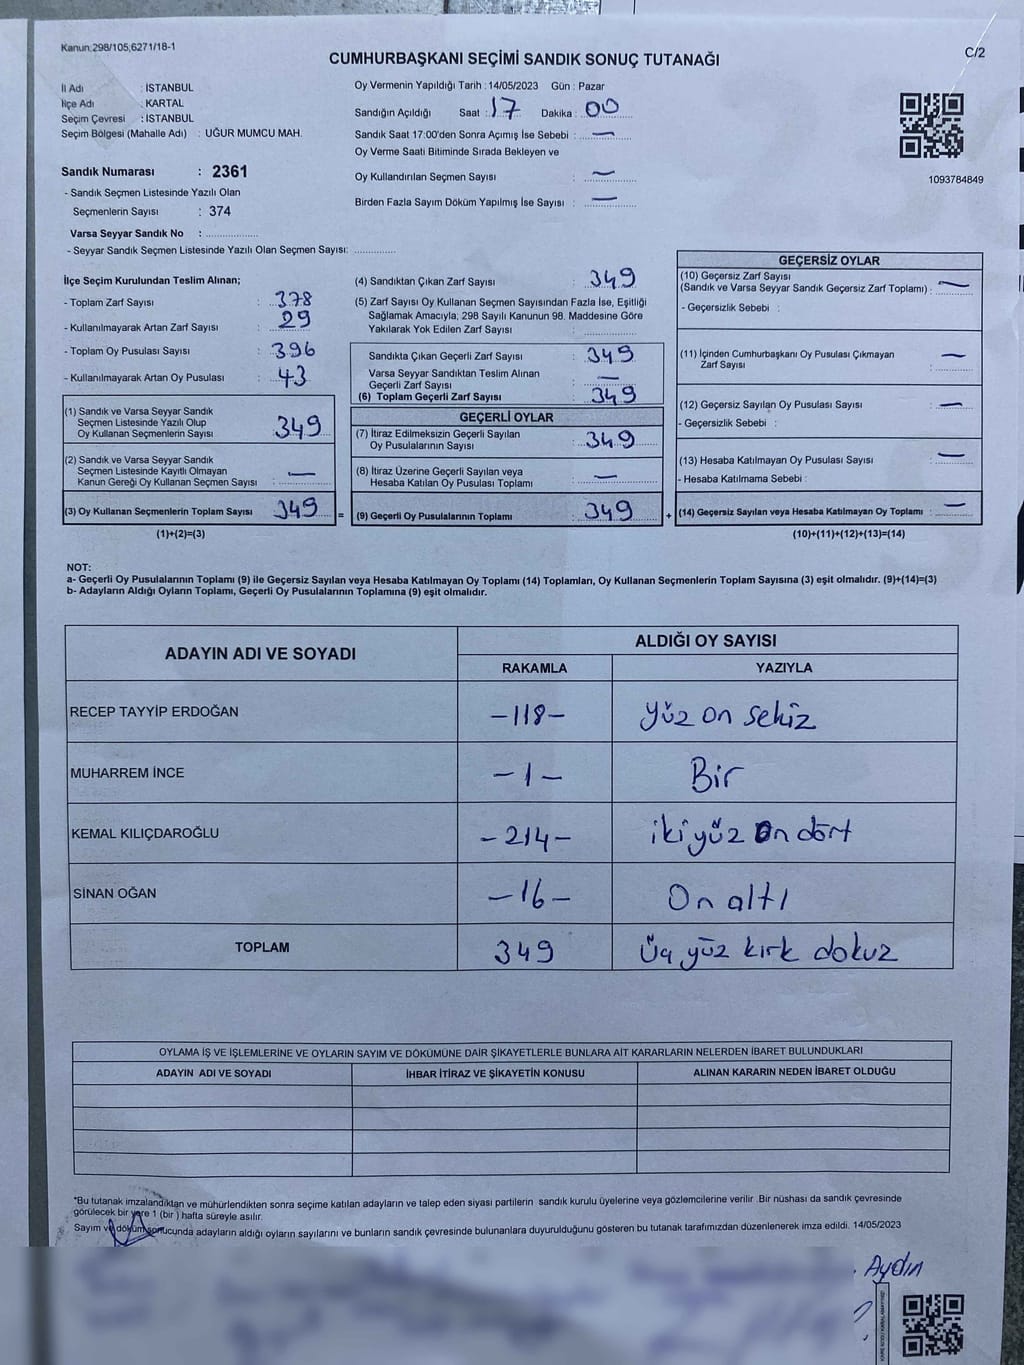 Kanun:298/105,6271/18-1
CUMHURBAŞKANI SEÇİMİ SANDIK SONUÇ TUTANAĞI
C/2
İl Adı : İSTANBUL
İlçe Adı : KARTAL
Seçim Çevresi : İSTANBUL
Seçim Bölgesi (Mahalle Adı) : UĞUR MUMCU MAH.
Oy Vermenin Yapıldığı Tarih : 14/05/2023 Gün : Pazar
Sandığın Açıldığı Saat : 17 Dakika : 00
Sandık Saat 17:00'den Sonra Açımış İse Sebebi : —
Oy Verme Saati Bitiminde Sırada Bekleyen ve
Oy Kullandırılan Seçmen Sayısı : —
Birden Fazla Sayım Döküm Yapılmış İse Sayısı : —
1093784849
Sandık Numarası : 2361
- Sandık Seçmen Listesinde Yazılı Olan
Seçmenlerin Sayısı : 374
Varsa Seyyar Sandık No :
- Seyyar Sandık Seçmen Listesinde Yazılı Olan Seçmen Sayısı:
İlçe Seçim Kurulundan Teslim Alınan;
- Toplam Zarf Sayısı : 378
- Kullanılmayarak Artan Zarf Sayısı : 29
- Toplam Oy Pusulası Sayısı : 396
- Kullanılmayarak Artan Oy Pusulası : 43
(1) Sandık ve Varsa Seyyar Sandık
Seçmen Listesinde Yazılı Olup
Oy Kullanan Seçmenlerin Sayısı 349
(2) Sandık ve Varsa Seyyar Sandık
Seçmen Listesinde Kayıtlı Olmayan
Kanun Gereği Oy Kullanan Seçmen Sayısı : —
(3) Oy Kullanan Seçmenlerin Toplam Sayısı 349 =
(1)+(2)=(3)
(4) Sandıktan Çıkan Zarf Sayısı : 349
(5) Zarf Sayısı Oy Kullanan Seçmen Sayısından Fazla İse, Eşitliği
Sağlamak Amacıyla; 298 Sayılı Kanunun 98. Maddesine Göre
Yakılarak Yok Edilen Zarf Sayısı :
Sandıkta Çıkan Geçerli Zarf Sayısı : 349
Varsa Seyyar Sandıktan Teslim Alınan
Geçerli Zarf Sayısı : —
(6) Toplam Geçerli Zarf Sayısı : 349
GEÇERLİ OYLAR
(7) İtiraz Edilmeksizin Geçerli Sayılan
Oy Pusulalarının Sayısı : 349
(8) İtiraz Üzerine Geçerli Sayılan veya
Hesaba Katılan Oy Pusulası Toplamı : —
(9) Geçerli Oy Pusulalarının Toplamı : 349 +
GEÇERSİZ OYLAR
(10) Geçersiz Zarf Sayısı
(Sandık ve Varsa Seyyar Sandık Geçersiz Zarf Toplamı) : —
- Geçersizlik Sebebi :
(11) İçinden Cumhurbaşkanı Oy Pusulası Çıkmayan
Zarf Sayısı : —
(12) Geçersiz Sayılan Oy Pusulası Sayısı : —
- Geçersizlik Sebebi :
(13) Hesaba Katılmayan Oy Pusulası Sayısı : —
- Hesaba Katılmama Sebebi :
(14) Geçersiz Sayılan veya Hesaba Katılmayan Oy Toplamı : —
(10)+(11)+(12)+(13)=(14)
NOT:
a- Geçerli Oy Pusulalarının Toplamı (9) ile Geçersiz Sayılan veya Hesaba Katılmayan Oy Toplamı (14) Toplamları, Oy Kullanan Seçmenlerin Toplam Sayısına (3) eşit olmalıdır. (9)+(14)=(3)
b- Adayların Aldığı Oyların Toplamı, Geçerli Oy Pusulalarının Toplamına (9) eşit olmalıdır.
ADAYIN ADI VE SOYADI
ALDIĞI OY SAYISI
RAKAMLA YAZIYLA
RECEP TAYYİP ERDOĞAN -118- yüz on sekiz
MUHARREM İNCE -1- Bir
KEMAL KILIÇDAROĞLU -214- iki yüz on dört
SİNAN OĞAN -16- On altı
TOPLAM 349 Üç yüz kırk dokuz
OYLAMA İŞ VE İŞLEMLERİNE VE OYLARIN SAYIM VE DÖKÜMÜNE DAİR ŞİKAYETLERLE BUNLARA AİT KARARLARIN NELERDEN İBARET BULUNDUKLARI
ADAYIN ADI VE SOYADI İHBAR İTİRAZ VE ŞİKAYETİN KONUSU ALINAN KARARIN NEDEN İBARET OLDUĞU
"Bu tutanak imzalandıktan ve mühürlendikten sonra seçime katılan adayların ve talep eden siyasi partilerin sandık kurulu üyelerine veya gözlemcilerine verilir .Bir nüshası da sandık çevresinde
görülecek bir yere 1 (bir ) hafta süreyle asılır.
Sayım ve döküm sonucunda adayların aldığı oyların sayılarını ve bunların sandık çevresinde bulunanlara duyurulduğunu gösteren bu tutanak tarafımızdan düzenlenerek imza edildi. 14/05/2023
Aydın